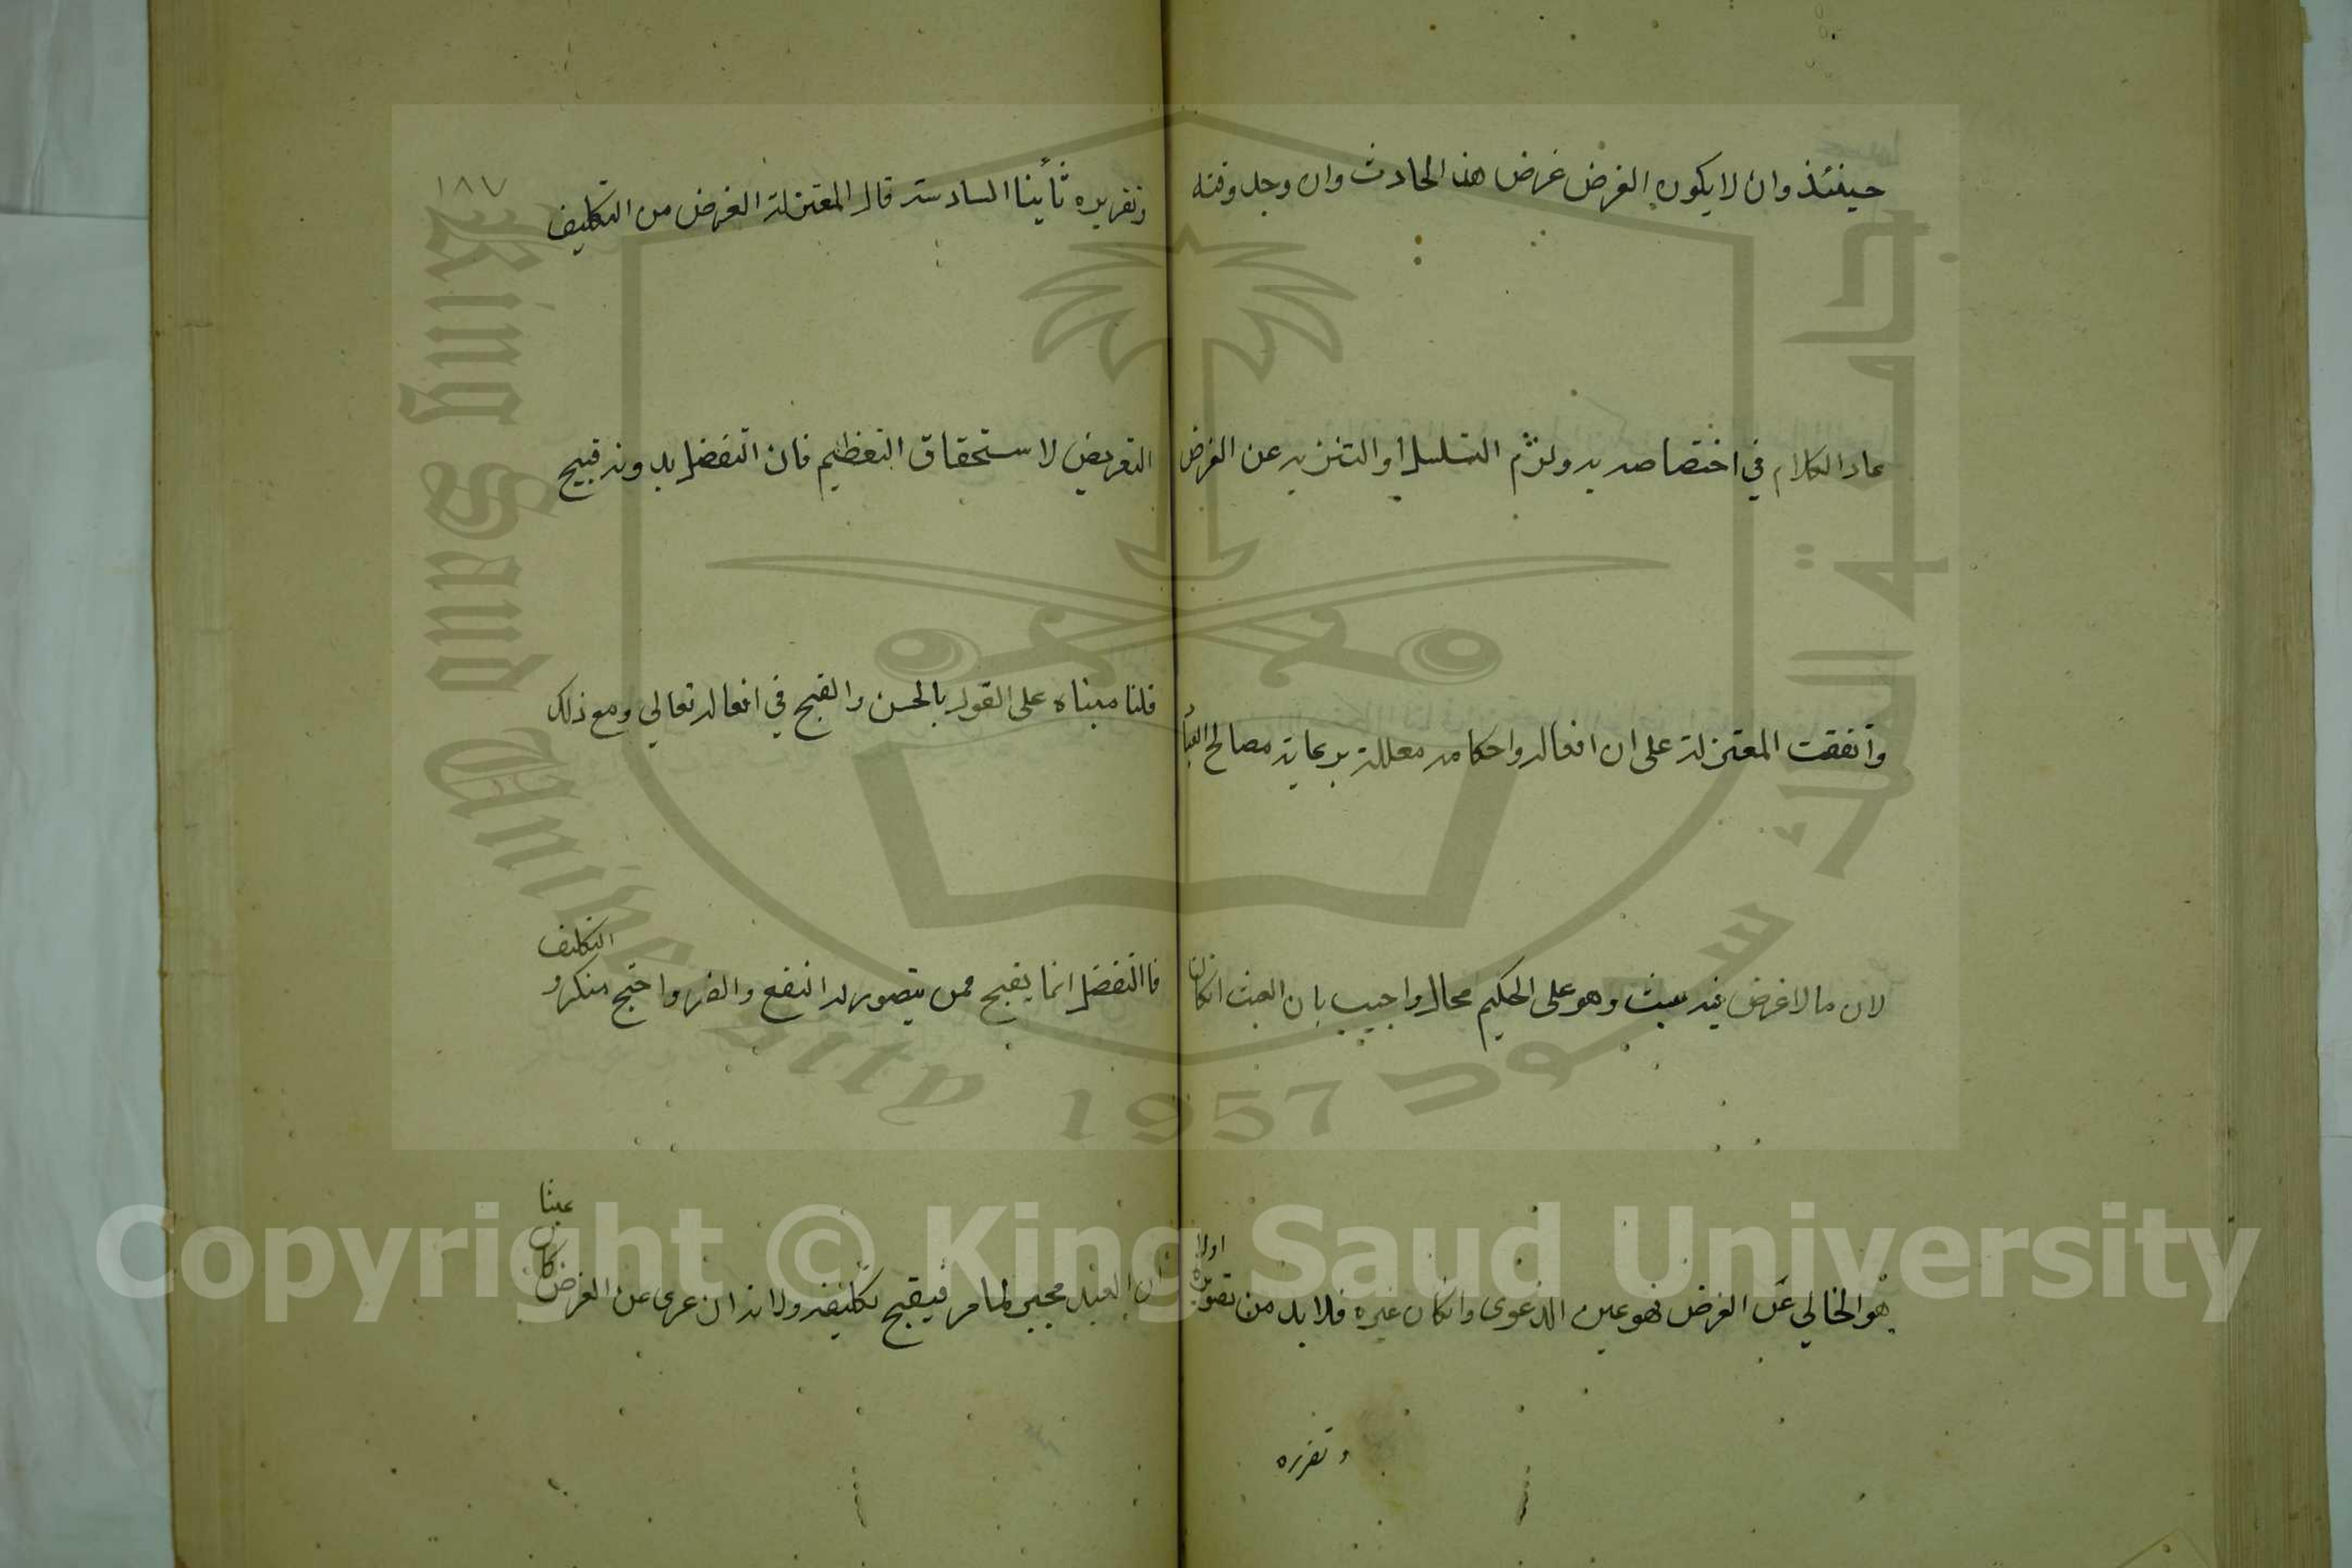 حينئذ وان لا يكون الغرض غرض هذا الحادث وان وجد وقته
عاد الكلام في اختصاصه به ولزم التسلسل او التنزيه عن الغرض
واتفقت المعتزلة على ان افعاله واحكامه معللة برعاية مصالح العباد
لان ما لا غرض فيه عبث وهو على الحكيم محال واجيب بان العبث ان كان
هو الخالي عن الغرض فهو عين الدعوى وان كان غيره فلا بد من تصويره اولا
وتقرره
١٨٧
وتقريره ثانيا السادسة قال المعتزلة الغرض من التكليف
التعريض لاستحقاق التعظيم فان التفضل بدونه قبيح
قلنا مبناه على القول بالحسن والقبح في افعاله تعالى ومع ذلك
فالتفضل انما يقبح ممن يتصور له النفع والضر واحتج منكرو التكليف
ان العبد مجبر لما مر فيقبح تكليفه ولانه ان عرى عن الغرض كان عبثا
جامعة الملك سعود
King Saud University
1957
Copyright © King Saud University